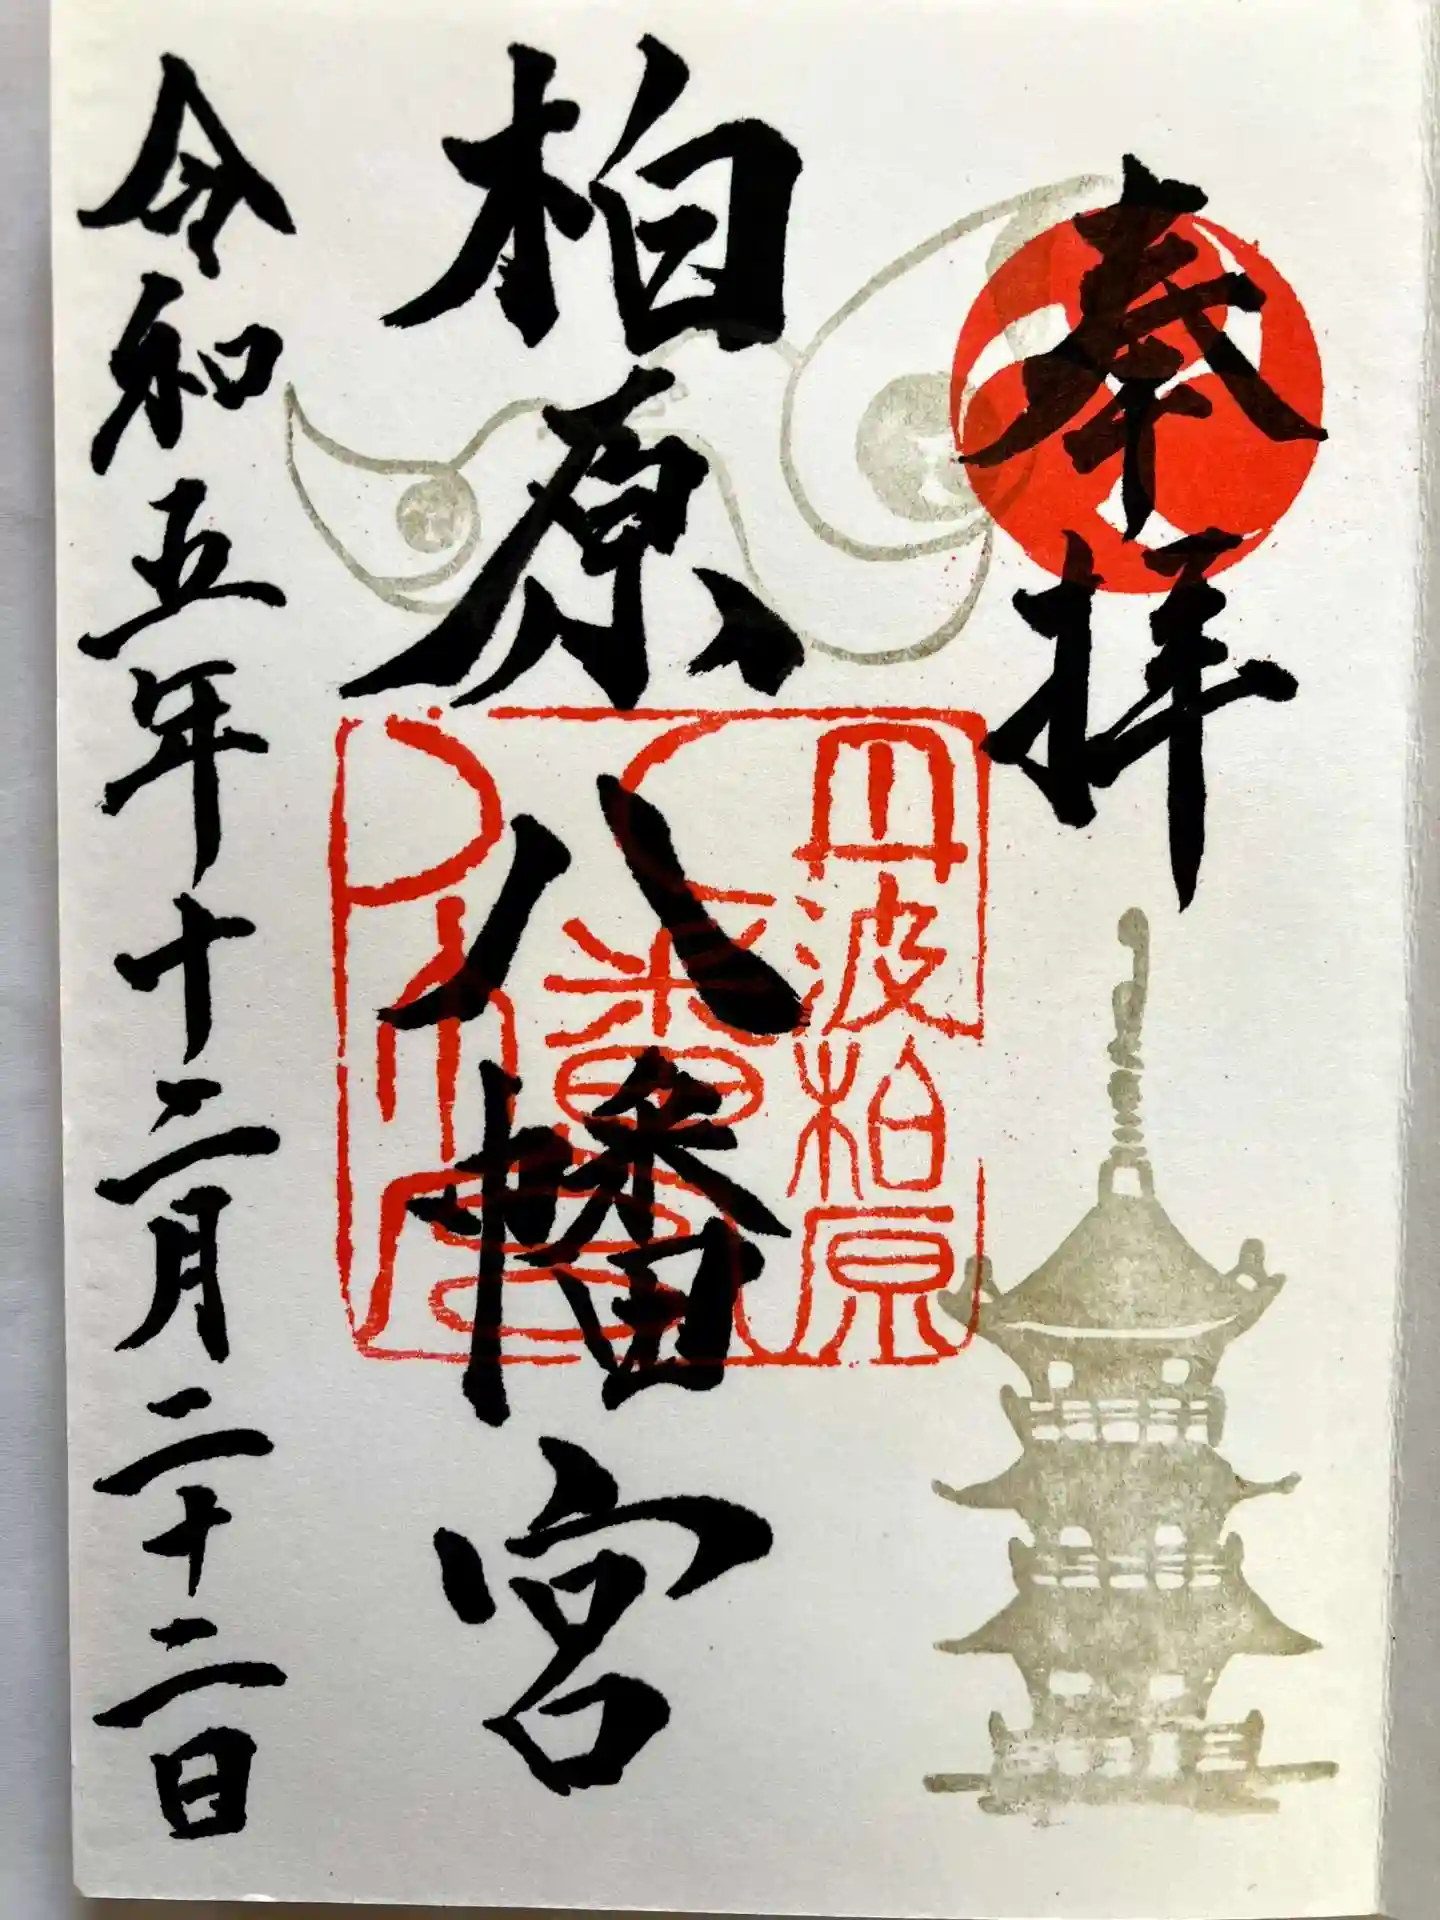 奉拝
丹波柏原
八幡
柏原八幡宮
令和五年十二月二十二日